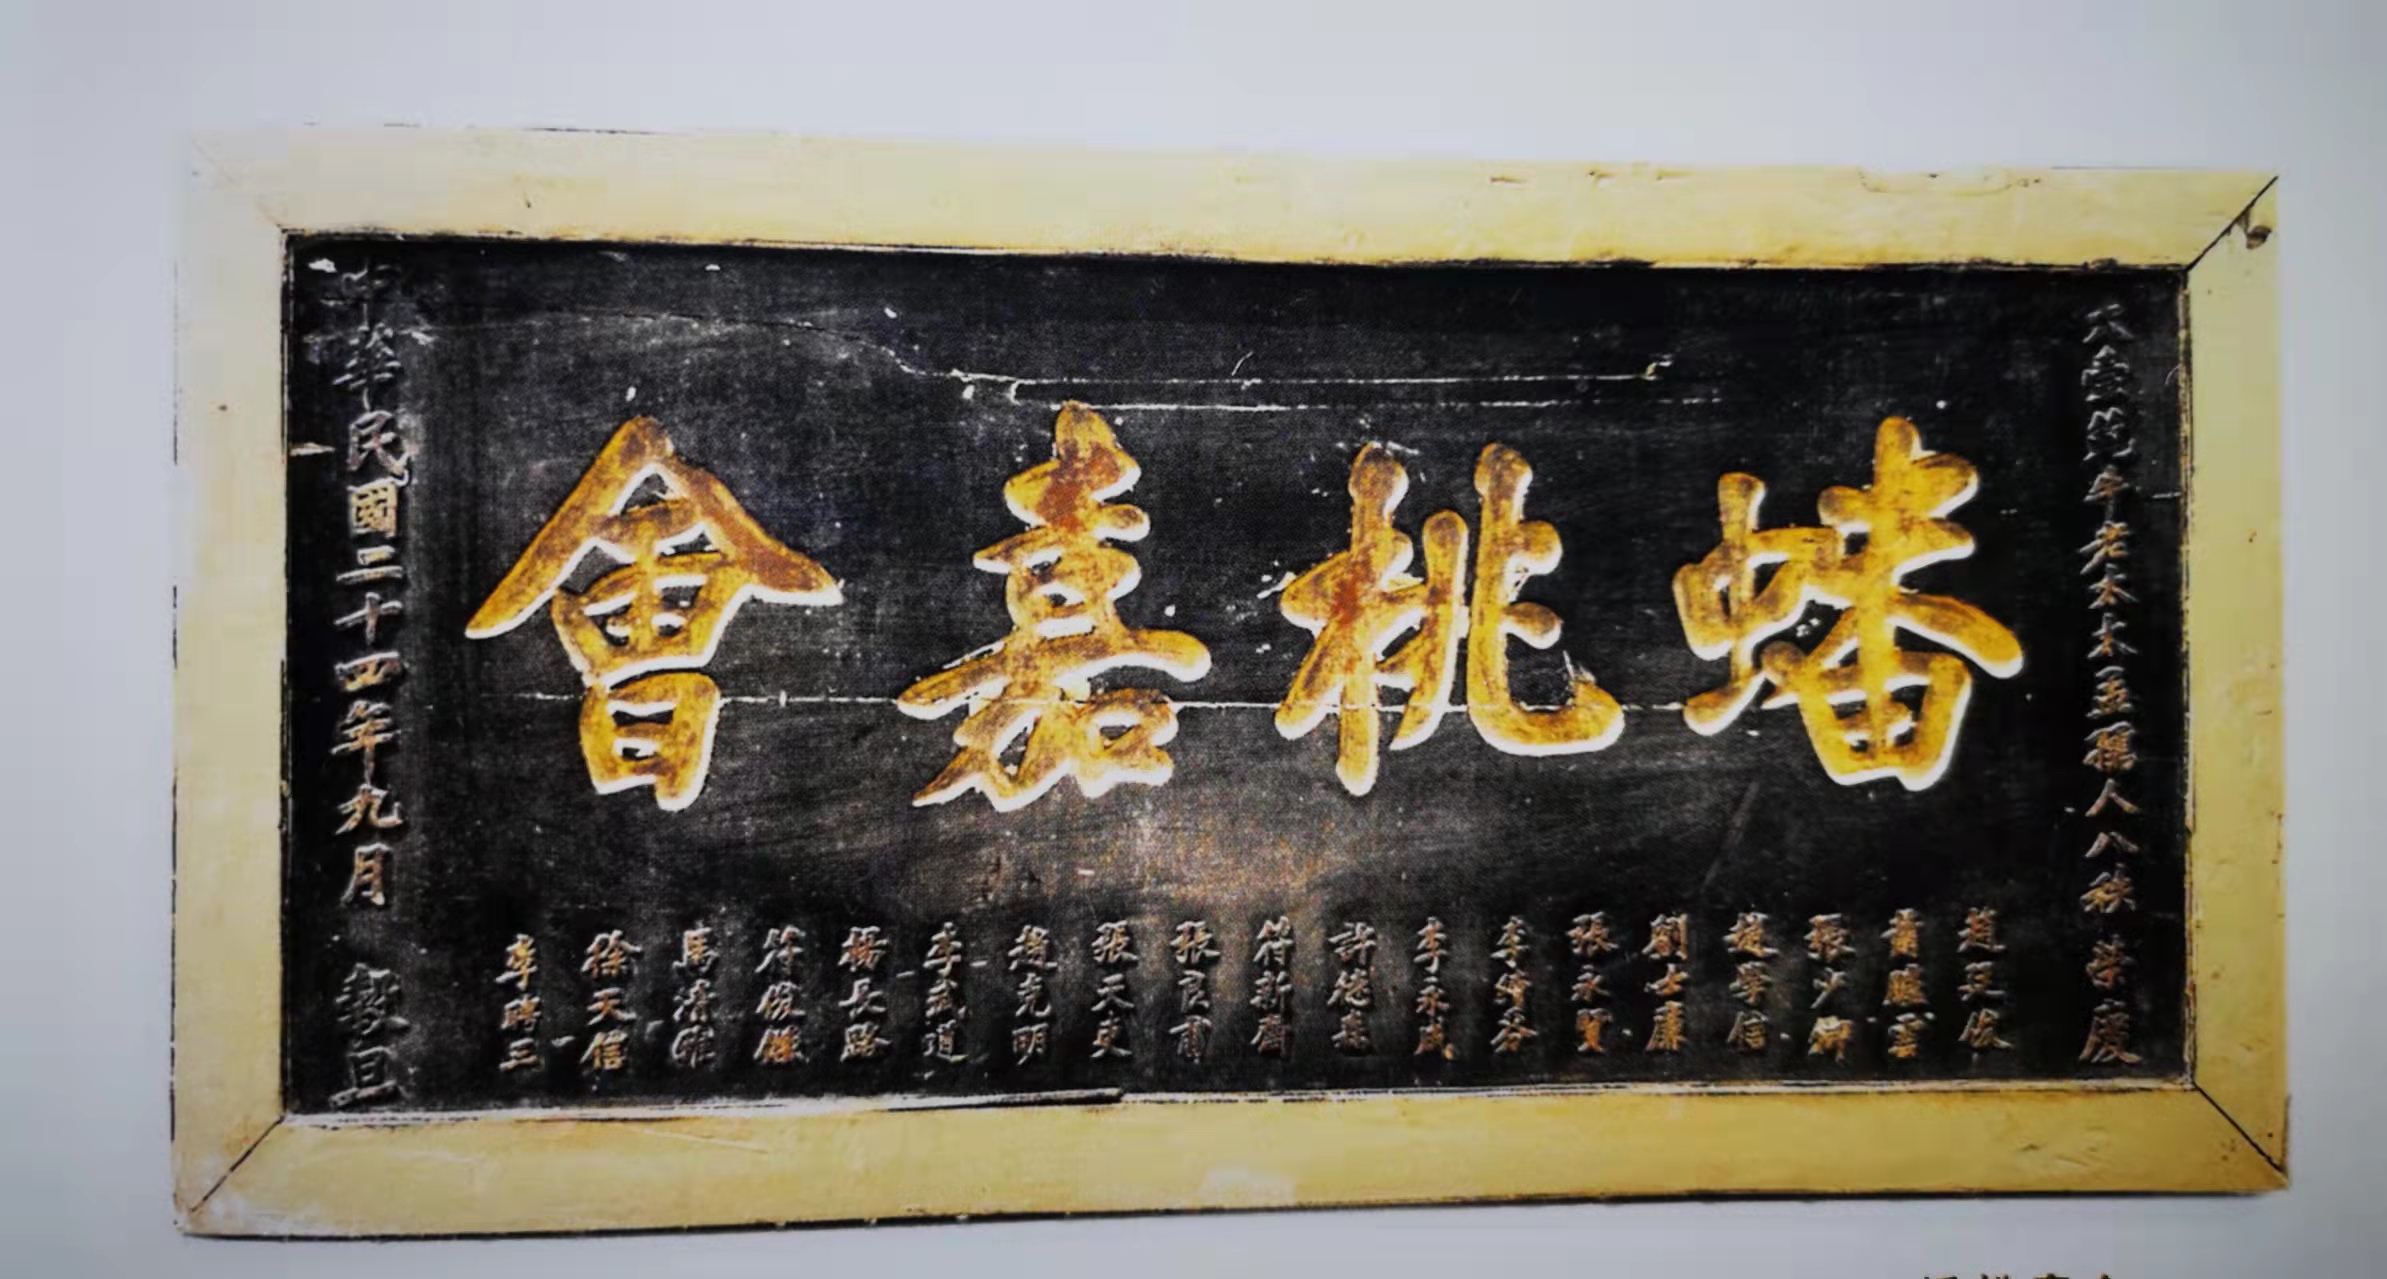 天壹范牛老太太孟孺人八秩榮慶
蟠桃嘉會
趙廷俊
蕭騰雲
張少卿
趙學信
劉士廉
張永賢
李
李永成
許德
符新齋
張良甫
張天吏
趙克明
李武道
楊長路
符俊傑
馬清
徐天信
李聘三
中華民國二十四年九月 穀旦